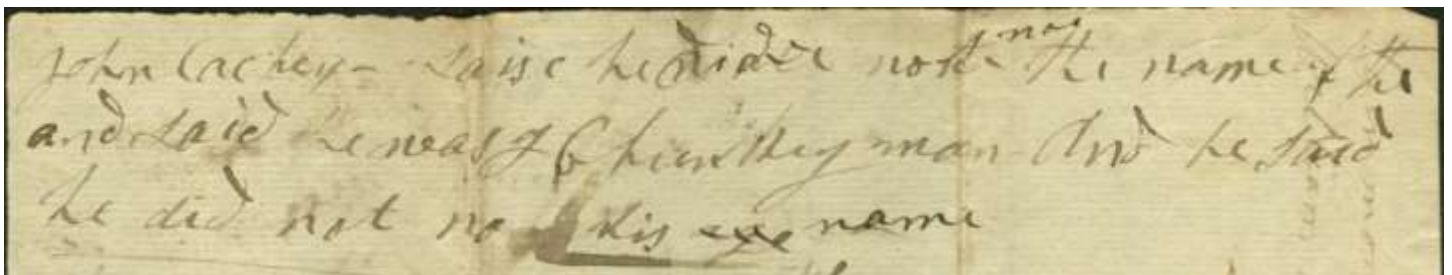 John Cackey - saise he didde not no the name of the
and said he was a Chunkey man And he said
he did not no his name